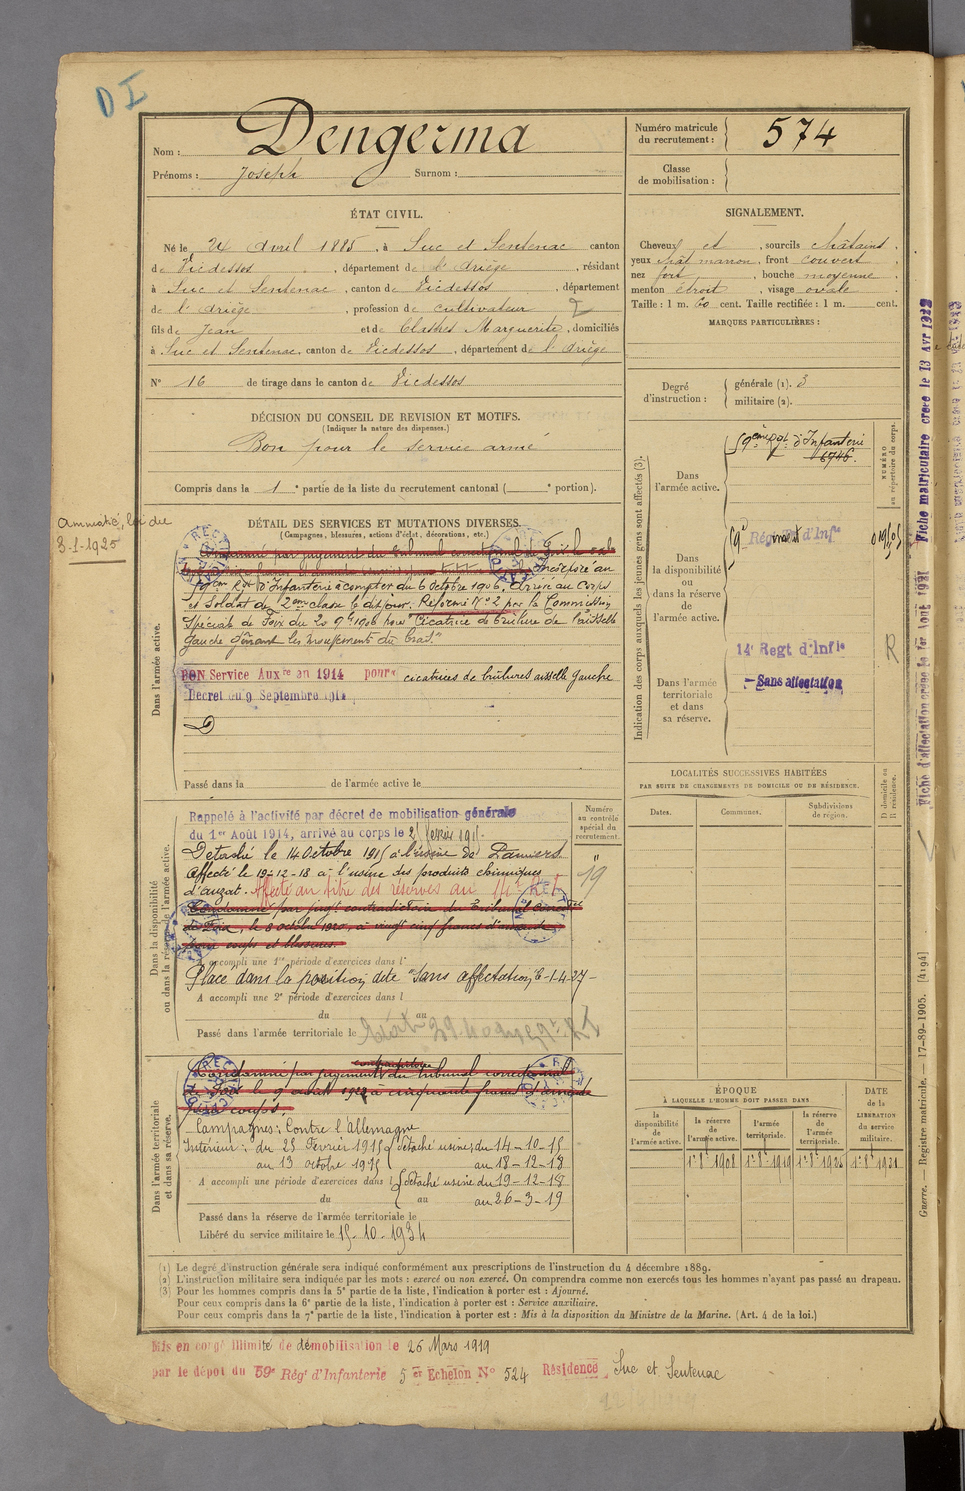 DI
Nom : Dengerma
Prénoms : Joseph Surnom :
Numéro matricule du recrutement : 574
Classe de mobilisation :
ÉTAT CIVIL.
Né le 24 Avril 1885, à Suc et Sentenac canton
de Vicdessos, département de l'Ariège, résidant
à Suc et Sentenac, canton de Vicdessos, département
de l'Ariège, profession de cultivateur
fils de Jean et de Marguerite, domiciliés
à Suc et Sentenac, canton de Vicdessos, département de l'Ariège
N° 16 de tirage dans le canton de Vicdessos
SIGNALEMENT.
Cheveux et, sourcils châtains,
yeux chât marron, front couvert
nez fort, bouche moyenne
menton étroit, visage ovale
Taille : 1 m. 60 cent. Taille rectifiée : 1 m. cent.
MARQUES PARTICULIÈRES :
Degré d'instruction : générale (1). 3
militaire (2).
DÉCISION DU CONSEIL DE REVISION ET MOTIFS.
(Indiquer la nature des dispenses.)
Bon pour le service armé
Compris dans la 1e partie de la liste du recrutement cantonal ( e portion).
Amnistié, loi du
3-1-1925
DÉTAIL DES SERVICES ET MUTATIONS DIVERSES.
(Campagnes, blessures, actions d'éclat, décorations, etc.)
Dans l'armée active.
Condamné par jugement du tribunal correctionnel de Foix
Incorporé au
59ème Rgt d'Infanterie à compter du 6 Octobre 1906. Arrivé au Corps
et Soldat de 2ème classe le dit jour. Réformé N° 2 par la Commission
Spéciale de Foix du 20 9bre 1906 pour "Cicatrice de brûlure de l'aisselle
gauche gênant les mouvements du bras."
BON Service Auxre en 1914 pour cicatrices de brûlures aisselle gauche
Décret du 9 Septembre 1914
Passé dans la de l'armée active le
Indication des corps auxquels les jeunes gens sont affectés (3).
NUMÉRO au répertoire du corps.
Dans l'armée active.
59ème Rgt d'Infanterie
6746
Dans la disponibilité ou dans la réserve de l'armée active.
59e Régiment d'Infie
14e Regt d'Infie
R
Dans l'armée territoriale et dans sa réserve.
Sans affectation
Fiche matriculaire créée le 13 Avr 1922
Fiche d'affectation créée le 1er Août 1921
LOCALITÉS SUCCESSIVES HABITÉES
PAR SUITE DE CHANGEMENTS DE DOMICILE OU DE RÉSIDENCE.
Dates. Communes. Subdivisions de région. D domicile ou R résidence.
Dans la disponibilité ou dans la réserve de l'armée active.
Numéro au contrôle spécial du recrutement.
19
Rappelé à l'activité par décret de mobilisation générale
du 1er Août 1914, arrivé au corps le 25 février 1915
Détaché le 14 Octobre 1915 à l'usine de Pamiers
Affecté le 19-12-18 à l'usine des produits chimiques
d'Auzat. Affecté au titre des réserves au 14e R.I.
Condamné par jugt contradictoire du Tribunal Correct
de Foix, le 8 octobre 1920, à vingt cinq francs d'amende
pour coups et blessures.
A accompli une 1re période d'exercices dans l
Placé dans la position dite "Sans affectation" le 1-4-27
A accompli une 2e période d'exercices dans l
du au
Passé dans l'armée territoriale le
Dans l'armée territoriale et dans sa réserve.
contradictoire
Condamné par jugement du tribunal correctionnel
de Foix le 9 1922 à cinquante francs d'amende
pour coups.
Campagnes : Contre l'Allemagne
Intérieur : du 25 Février 1915 Détaché usine, du 14-10-15
au 13 octobre 1915 au 18-12-18
A accompli une période d'exercices dans l Détaché usine du 19-12-18
du au au 26-3-19
Passé dans la réserve de l'armée territoriale le
Libéré du service militaire le 15-10-1934
ÉPOQUE
À LAQUELLE L'HOMME DOIT PASSER DANS
DATE de la LIBERATION du service militaire.
la disponibilité de l'armée active. la réserve de l'armée active. l'armée territoriale. la réserve de l'armée territoriale.
1er 8bre 1908 1er 8bre 1919 1er 8bre 1925 1er 8bre 1931
Guerre. — Registre matricule. — 17-89-1905. [4194]
(1) Le degré d'instruction générale sera indiqué conformément aux prescriptions de l'instruction du 4 décembre 1889.
(2) L'instruction militaire sera indiquée par les mots : exercé ou non exercé. On comprendra comme non exercés tous les hommes n'ayant pas passé au drapeau.
(3) Pour les hommes compris dans la 5e partie de la liste, l'indication à porter est : Ajourné.
Pour ceux compris dans la 6e partie de la liste, l'indication à porter est : Service auxiliaire.
Pour ceux compris dans la 7e partie de la liste, l'indication à porter est : Mis à la disposition du Ministre de la Marine. (Art. 4 de la loi.)
Mis en congé illimité de démobilisation le 26 Mars 1919
par le dépôt du 59e Régt d'Infanterie 5 er Echelon N° 524 Résidence, Suc et Sentenac